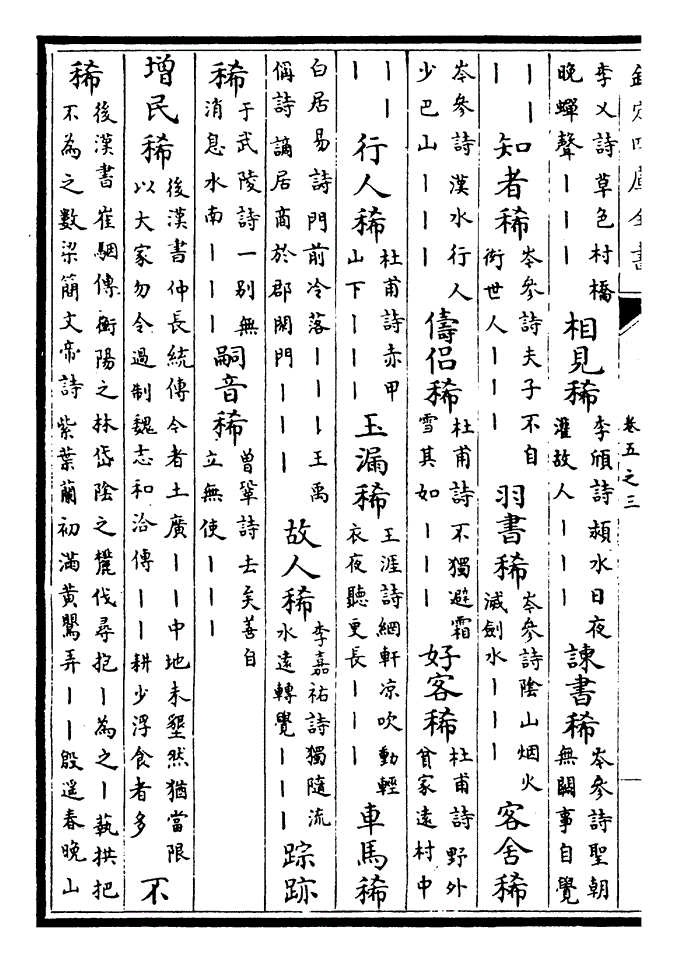 欽定四庫全書 卷五之三
李乂詩草色村橋晚蟬聲丨丨丨 相見稀 李頎詩潁水日夜灌故人丨丨丨 諫書稀 岑參詩聖朝無闕事自覺
丨丨丨 知者稀 岑參詩夫子不自衒世人丨丨丨 羽書稀 岑參詩陰山烟火滅劍水丨丨丨 客舍稀
岑參詩漢水行人少巴山丨丨丨 儔侣稀 杜甫詩不獨避霜雪其如丨丨丨 好客稀 杜甫詩野外貧家遠村中
丨丨丨 行人稀 杜甫詩赤甲山下丨丨丨 玉漏稀 王涯詩綱軒凉吹動輕衣夜聽更長丨丨丨 車馬稀
白居易詩門前冷落丨丨丨王禹偁詩謫居商於郡閑門丨丨丨 故人稀 李嘉祐詩獨隨流水遠轉覺丨丨丨 踪跡
稀 于武陵詩一别無消息水南丨丨丨 嗣音稀 曾鞏詩去矣善自立無使丨丨丨
增民稀 後漢書仲長統傳今者土廣丨丨中地未墾然猶當限以大家勿令過制魏志和洽傳丨丨耕少浮食者多 不
稀 後漢書崔駰傳衡陽之林岱陰之麓伐尋抱丨為之丨蓺拱把不為之數梁簡文帝詩紫葉蘭初滿黄鸎弄丨丨殷遥春晚山